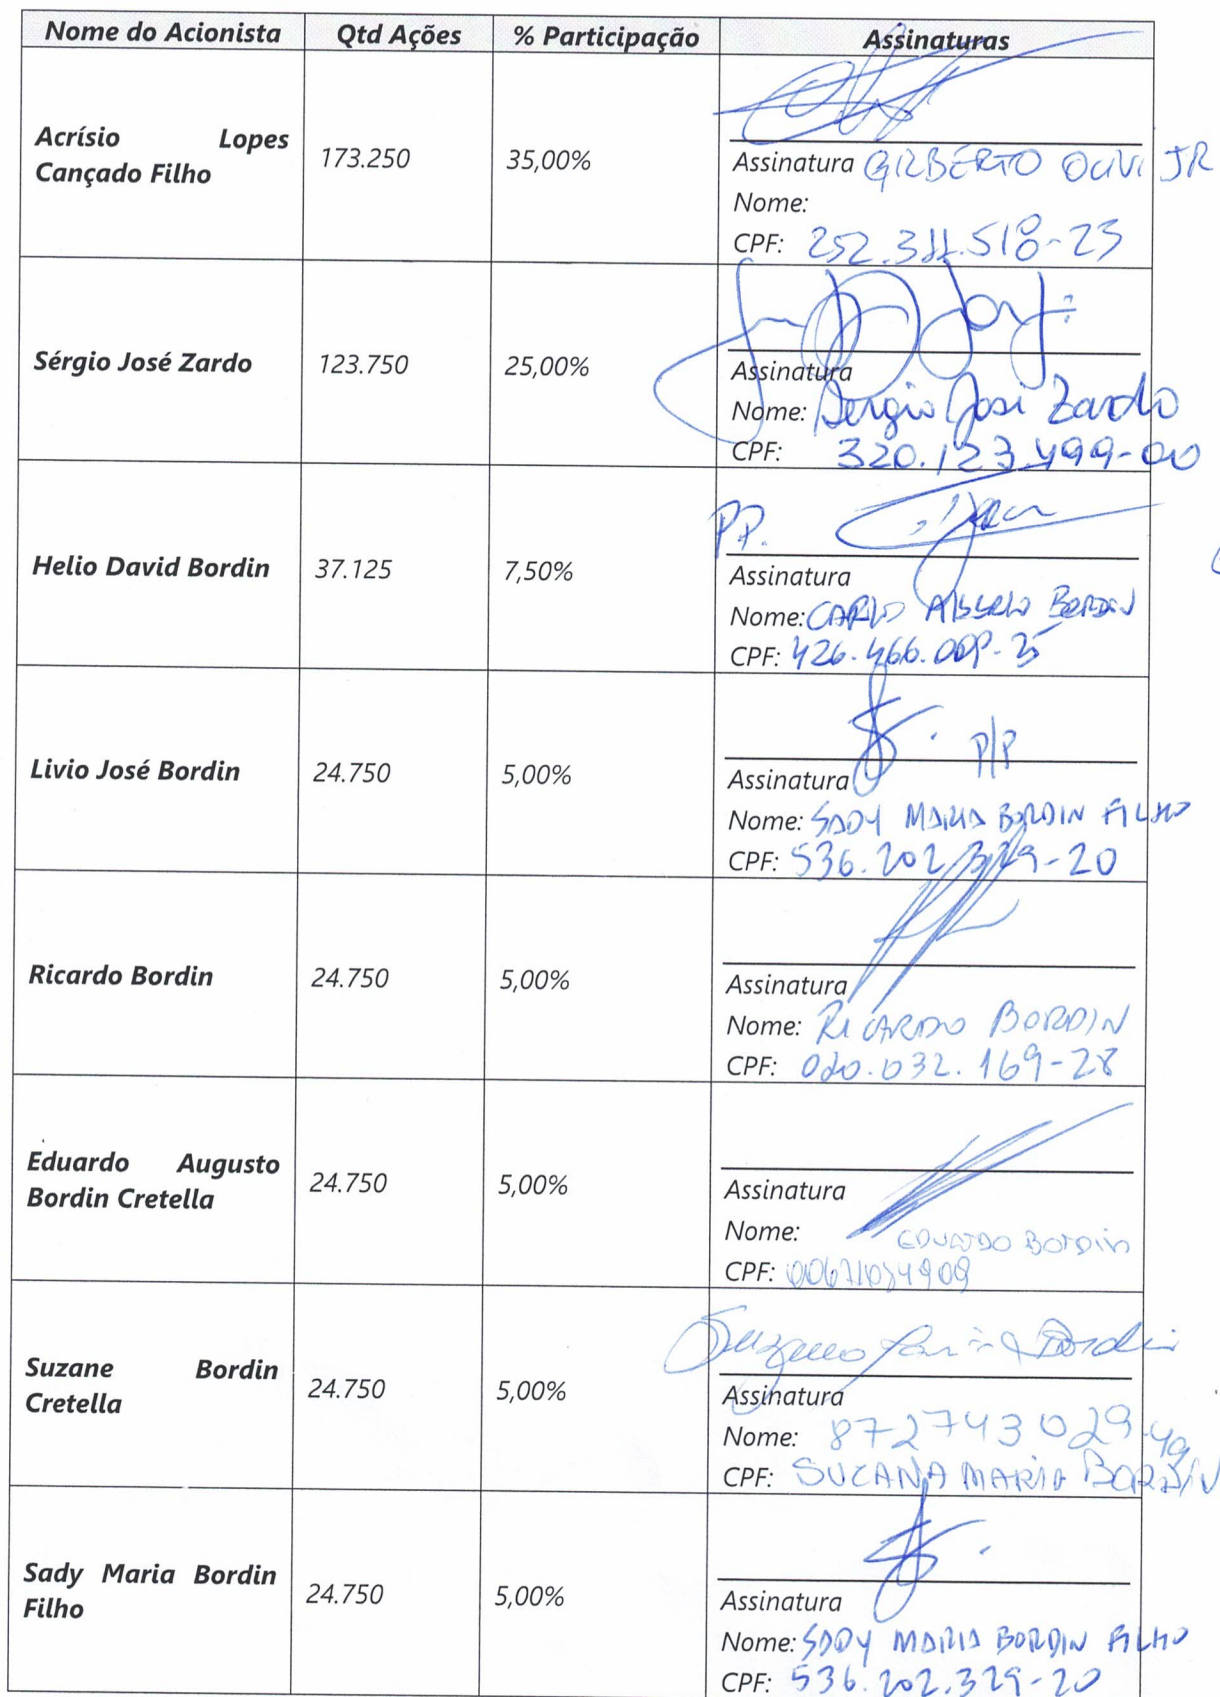 Nome do Acionista Qtd Ações % Participação Assinaturas
Acrísio Lopes
Cançado Filho
173.250
35,00%
Assinatura GILBERTO OLIVI JR
Nome:
CPF: 252.311.518-23
Sérgio José Zardo
123.750
25,00%
Assinatura
Nome: Sergio José Zardo
CPF: 320.123.499-00
Helio David Bordin
37.125
7,50%
PP.
Assinatura
Nome: CARLO BORDIN
CPF: 426.466.009-
Livio José Bordin
24.750
5,00%
P/P
Assinatura
Nome: SADY MARIA BORDIN FILHO
CPF: 536.202.329-20
Ricardo Bordin
24.750
5,00%
Assinatura
Nome: RICARDO BORDIN
CPF: 020.032.169-28
Eduardo Augusto
Bordin Cretella
24.750
5,00%
Assinatura
Nome: EDUARDO BORDIN
CPF:
Suzane Bordin
Cretella
24.750
5,00%
Assinatura
Nome: 872743029-49
CPF: SUZANA MARIA BORDIN
Sady Maria Bordin
Filho
24.750
5,00%
Assinatura
Nome: SADY MARIA BORDIN FILHO
CPF: 536.202.329-20